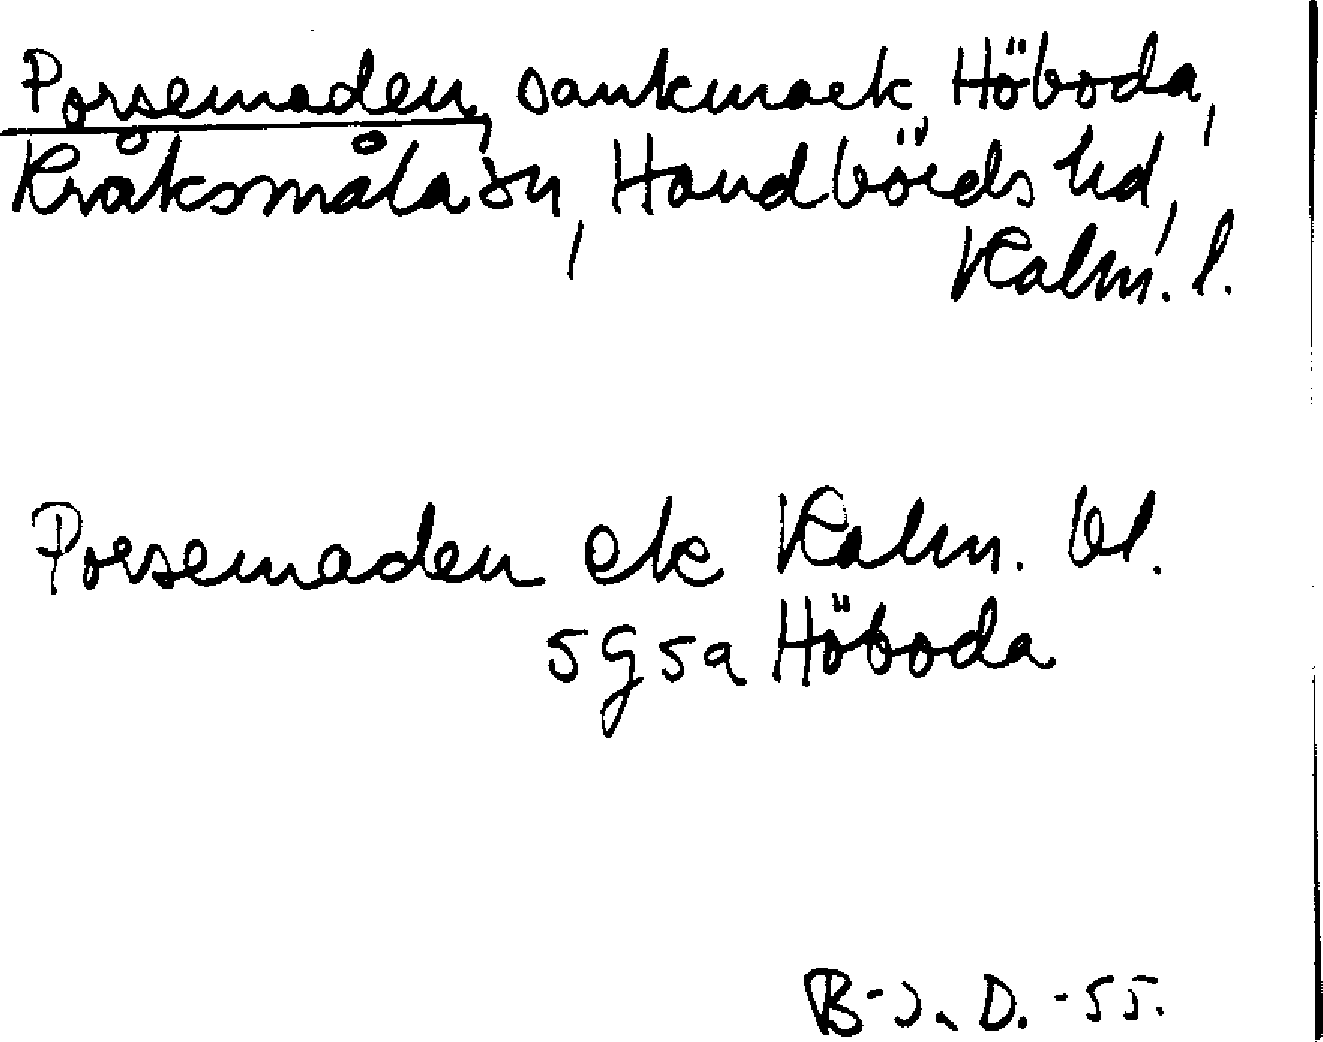 Porsemaden, sankmark, Höboda,
Kråksmåla sn, Handbörds hd,
Kalm. l.
Porsemaden ek Kalm. bl.
5G5a Höboda
B-J. D. -55.